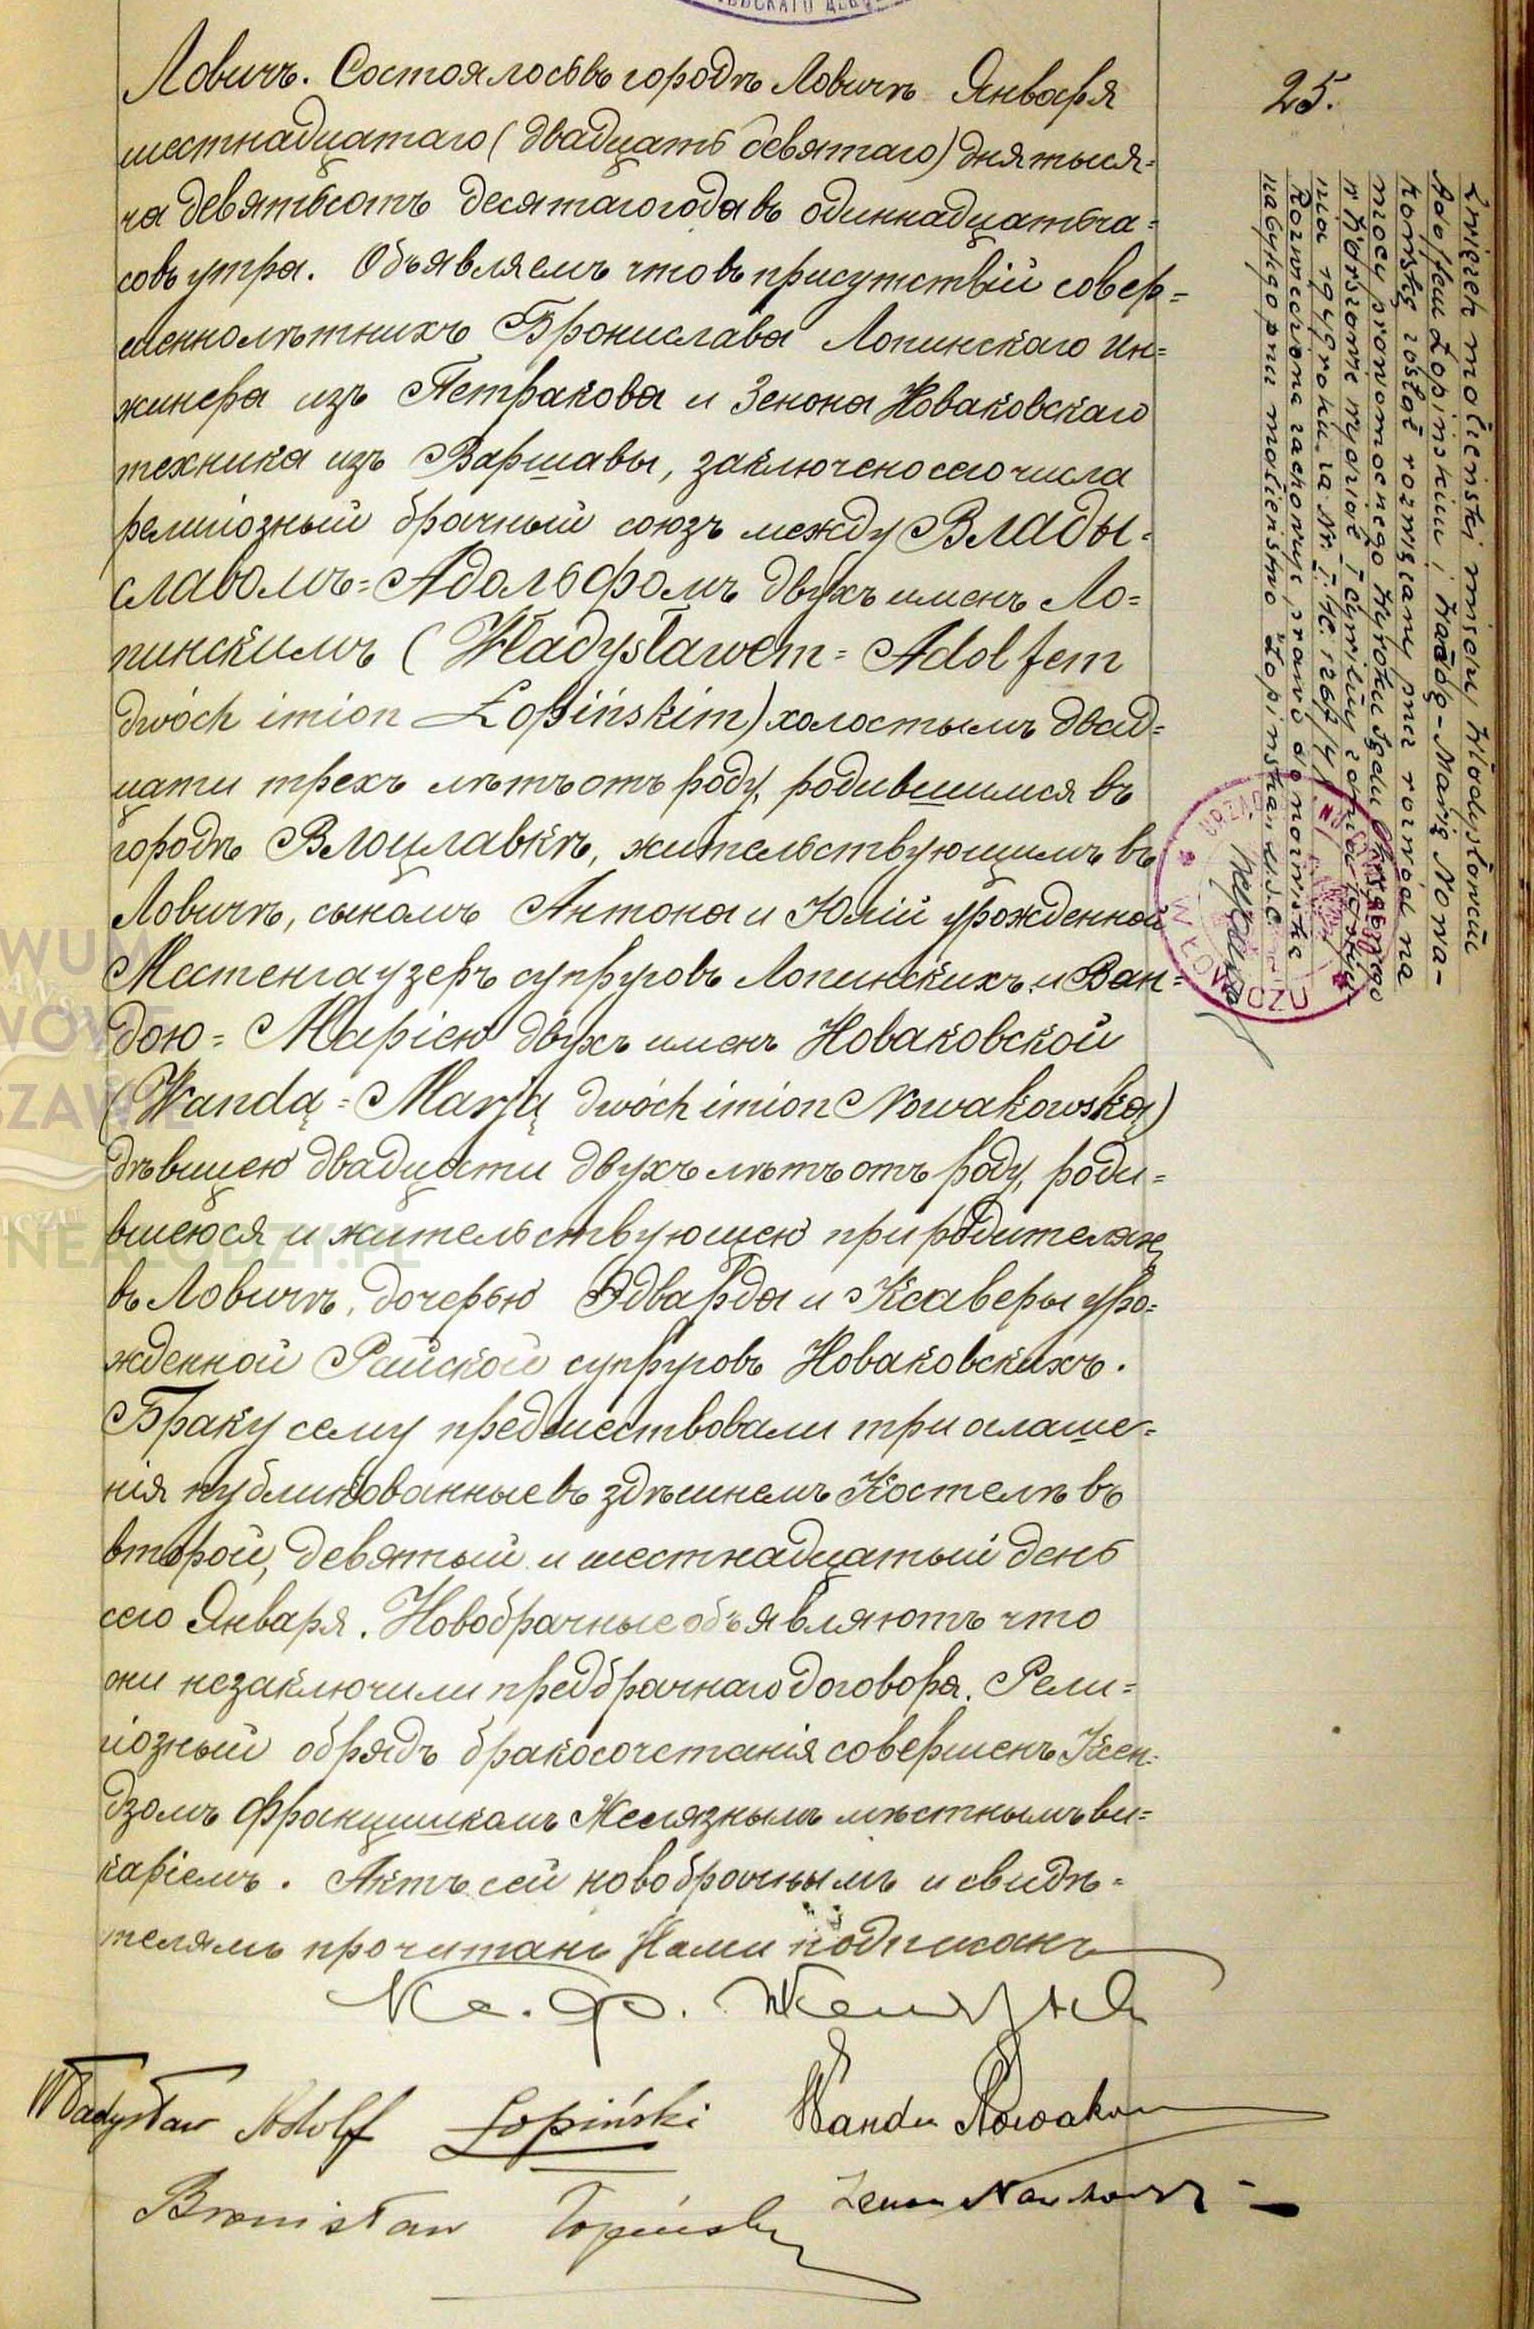 25.
Ловичъ. Состоялось въ городѣ Ловичѣ Января
шестнадцатаго (двадцать девятаго) дня тыся=
ча девятьсотъ десятаго года въ одиннадцать ча=
совъ утра. Объявляемъ что въ присутствіи совер=
шеннолѣтнихъ Бронислава Лопинскаго ин=
жинера изъ Петракова и Зенона Новаковскаго
техника изъ Варшавы, заключено сего числа
религіозный брачный союзъ между Влады=
славомъ=Адольфомъ двухъ именъ Ло=
пинскимъ (Władysławem=Adolfem
dwóch imion Łopińskim) холостымъ двад=
цати трехъ лѣтъ отъ роду, родившимся въ
городѣ Влоцлавкѣ, жительствующимъ въ
Ловичѣ, сыномъ Антона и Юліи урожденной
Мстенгаузеръ супруговъ Лопинскихъ и Ван=
дою=Маріею двухъ именъ Новаковской
(Wandą=Marją dwóch imion Nowakowską)
дѣвицею двадцати двухъ лѣтъ отъ роду, роди=
вшеюся и жительствующею при родителяхъ
въ Ловичѣ, дочерью Эдварда и Ксаверы уро=
жденной Райской супруговъ Новаковскихъ.
Браку сему предшествовали три оглаше=
нія публикованные въ здѣшнемъ Костелѣ въ
второй, девятый и шестнадцатый день
сего Января. Новобрачные объявляютъ что
они незаключили предбрачнаго договора. Рели=
гіозный обрядъ бракосочетанія совершенъ Ксен=
дзомъ Францишкомъ Желязнымъ мѣстнымъ ви=
каріемъ. Актъ сей новобрачнымъ и свидѣ=
телямъ прочитанъ Нами подписанъ
Кс. Ф. Желязный
Władysław Adolf Łopiński Wanda Nowakow
Bronisław Łopiński Zenon Nowakowski
Związek małżeński między Władysławem
Adolfem Łopińskim i Wandą-Marią Nowa-
kowską został rozwiązany przez rozwód na
mocy prawomocnego wyroku Sądu Okręgowego
w Warszawie wydział I cywilny z dnia
nia 1949 roku za Nr. I.1C. 1267/47
Rozwiedziona zachowuje prawo do nazwiska
nabytego przez małżeństwo "Łopińska" U.S.C.
URZĄD STANU CYWILNEGO
W ŁOWICZU